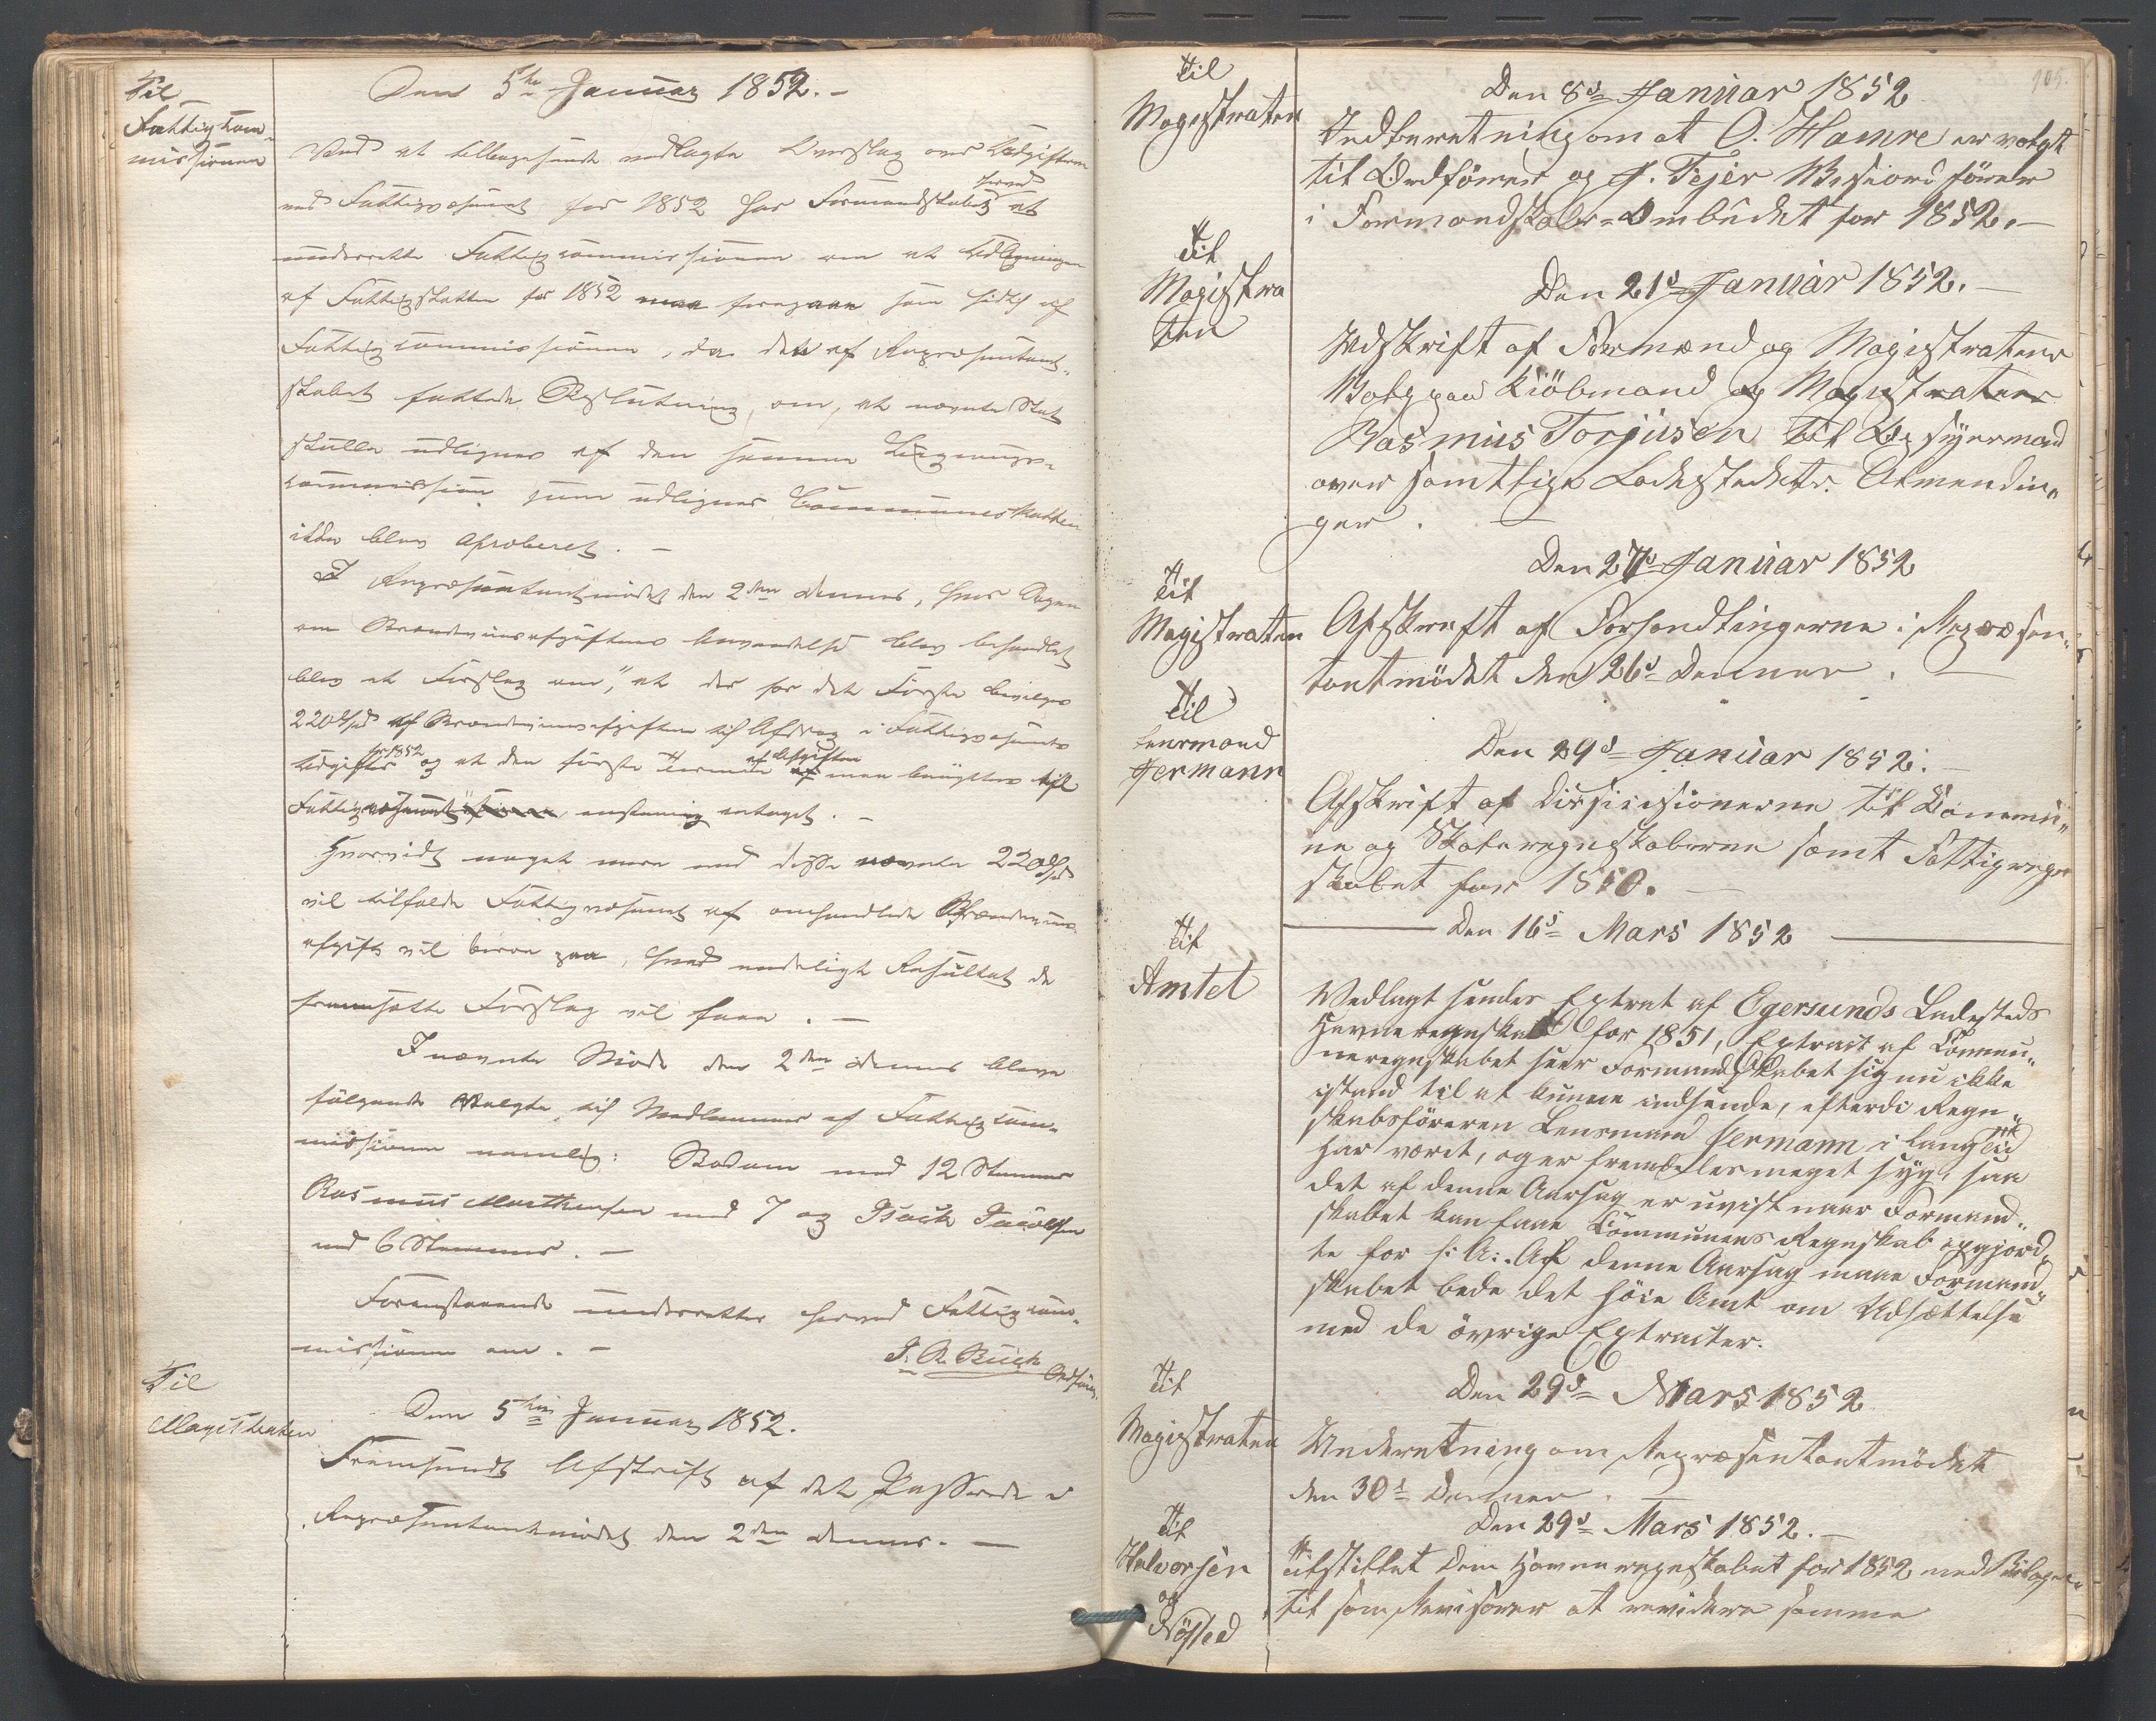 Til
Fattigkom-
missionen
Den 5te Januar 1852.-
Ved at tilbagesende vedlagte Overslag over Udgifterne
ved Fattigvæsenet for 1852 har Formandskabet herved at
underrette Fattigcommissionen om at Udligningen
af Fattigskatten for 1852 maa foregaae som hidtil af
Fattigcommissionen, da det af Repræsentant-
skabet fattede Beslutning, om, at nævnte Skat
skulle udlignes af den samme Lignings-
commission som udligner Communeskatten
ikke blev Aproberet. -
I Repræsentantmødet den 2den dennes, hvor Sagen
om Brændeviinsafgiftens Anvendelse blev behandlet
blev et Forslag om, "at der for det Første bevilges
220 Spd af Brændeviinsafgiften til Afdrag i Fattigvæsenets
Udgifter for 1852 og at den første Termin af Afgiften maa benyttes til
Fattigvæsenet" eenstemmig antaget. -
Hvorvidt noget mere end disse nævnte 220 Spd
vil tilfalde Fattigvæsenet af omhandlede Brændeviins-
afgift vil beroe paa, hvad endeligt Resultat de
fremsatte Forslag vil faae. -
I nævnte Møde den 2den dennes bleve
følgende valgte til Medlemmer af Fattigcom-
missionen nemlig: Bodom med 12 Stemmer
Rasmus Morthensen med 7 og Isack Jacobsen
med 6 Stemmer. -
Foranstaaende underrettes herved Fattigcom-
missionen om. -
J. A. Buch
Ordfører
Til
Magistraten
Den 5te Januar 1852.
Fremsendt Afskrift af det Passerede i
Repræsentantmødet den 2den dennes. -
105.
Til
Magistraten
Den 8de Januar 1852
Indberetning om at O. Hamre er valgt
til Ordfører og J. Fejer Viseordfører
i Formandskabs-Ombudet for 1852. -
Til
Magistra
ten
Den 21de Januar 1852. -
Udskrift af Formænd og Magistratens
Valg paa Kiøbmand og Magistratens
Rasmus Torjusen til Opsynsmand
over samtlige Ladestedets Almendin-
ger. -
Til
Magistraten
Den 27de Januar 1852
Afskrift af Forhandlingerne i Repræsen-
tantmødet den 26de Dennes. -
Til
Lensmand
Jermann
Den 29de Januar 1852. -
Afskrift af Disicisionerne til Commu-
ne og Skoleregnskaberne samt Fattigregn
skabet for 1850. -
Til
Amtet
Den 16de Mars 1852
Vedlagt sendes Extrat af Egersunds Ladesteds
Havneregnskab for 1851, Extract af Commu-
neregnskabet seer Formandskabet sig nu ikke
istand til at kunne indsende, efterdi Regn-
skabsføreren Lensmand Jermann i lang Tid
har været, og er fremdeles meget syg, saa
det af denne Aarsag er uvist naar Formand-
skabet kan faae Communens Regnskab opgjord-
te for f: A:. Af denne Aarsag maae Formand-
skabet bede det høie Amt om Udsættelse
med de øvrige Extracter.
Til
Magistraten
Den 29de Mars 1852
Underretning om Repræsentantmødet
den 30te Dennes.
Til
Halvorsen
og
Nøsted
Den 29de Mars 1852. -
Tilstillet dem Havneregnskabet for 1852 med Bilager
til som Revisorer at revidere samme